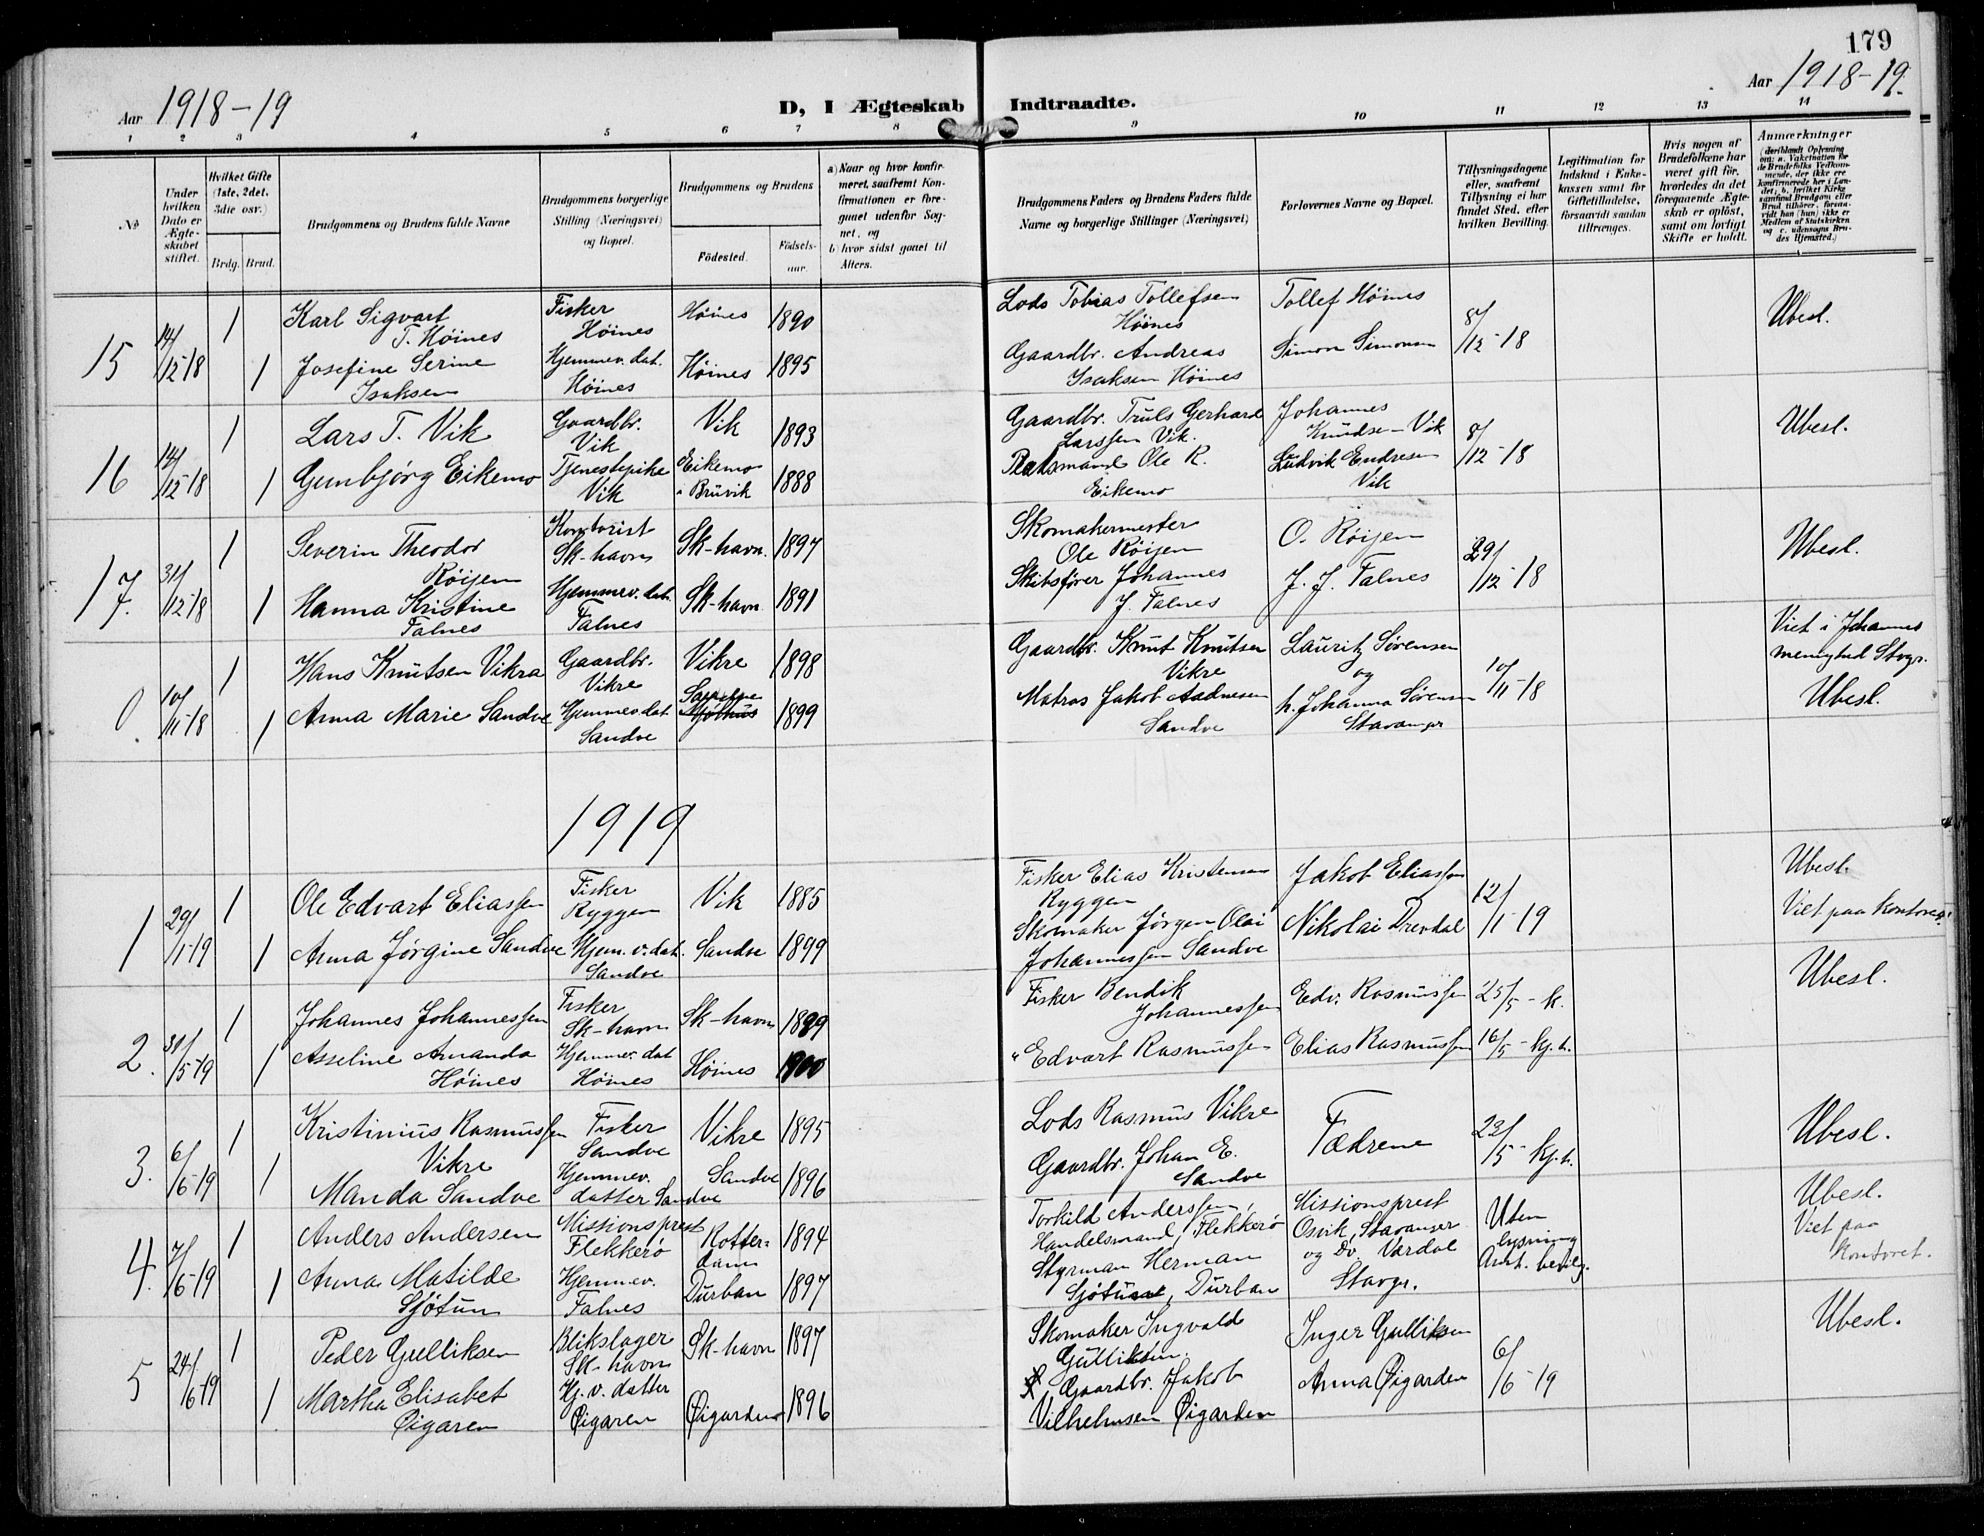 179
Aar 1918-19
D, I Ægteskab Indtraadte.
Aar 1918-19.
1 2 3 4 5 6 7 8 9 10 11 12 13 14
No
Under hvilken Dato er Ægteskabet stiftet.
Hvilket Gifte (1ste, 2det, 3die osv.)
Brdg. Brud.
Brudgommens og Brudens fulde Navne
Brudgommens borgerlige Stilling (Næringsvei) og Bopæl.
Brudgommens og Brudens
Födested.
Födsels-aar.
a) Naar og hvor konfirmeret, saafremt Konfirmationen er foregaaet udenfor Sognet, og
b) hvor sidst gaaet til Alters.
Brudgommens Faders og Brudens Faders fulde Navne og borgerlige Stillinger (Næringsvei)
Forlovernes Navne og Bopæl.
Tillysningsdagene eller, saafremt Tillysning ei har fundet Sted, efter hvilken Bevilling.
Legitimation for Indskud i Enkekassen samt for Giftetilladelse, forsaavidt saadan tiltrænges.
Hvis nogen af Brudefolkene har været gift før, hvorledes da det foregaaende Ægteskab er opløst, samt om lovligt Skifte er holdt.
Anmærkninger
15 14/12-18 1 Karl Sigvart T. Høines Fisker Høines Høines 1890 Lods Tobias Tollefsen Høines Tollef Høines 8/12-18 Ubesl.
1 Josefine Serine Isaksen Hjemmev. dat. Høines Høines 1895 Gaardbr. Andreas Isaksen Høines Simon Simonsen
16 14/12-18 1 Lars T. Vik Gaardbr. Vik Vik 1893 Gaardbr. Truls Gerhard Larssen Vik. Johannes Knudsen Vik 8/12-18 Ubesl.
1 Gunbjørg Eikemo Tjenestepike Vik Eikemo i Bruvik 1888 Ole R. Eikemo Ludvik Endresen Vik
17. 31/12-18 1 Severin Theodor Røijen Kontorist Sk-havn Sk-havn. 1897 Skomakermester Ole Røijen O. Røijen 29/12-18 Ubesl.
1 Hanna Kristine Falnes Hjemmev. dat. Falnes Sk-havn. 1891 Skibsfører Johannes J. Falnes J. J. Falnes
0. 10/11-18 1 Hans Knutsen Vikra Gaardbr. Vikre Vikre 1898 Gaardbr. Knut Knutsen Vikre Lauritz Sørensen og 10/11-18 Viet i Johannes menighed Stvgr.
1 Anna Marie Sandve Hjemmev dat Sandve Mjølhus 1899 Matros Jakob Aadnesen Sandve h. Johanna Sørensen Stavanger Ubesl.
1919
1 29/1-19 1 Ole Edvart Eliassen Fisker Ryggen Vik 1885 Fisker Elias Kristensen Ryggen Jakob Eliassen 12/1-19 Ubesl.
1 Anna Jørgine Sandve Hjem. v. dat. Sandve Sandve 1899 Skomaker Jørgen Olai Johannessen Sandve Nikolai Drevdal Viet paa kontoret
2. 31/5-19 1 Johannes Johannessen Fisker Sk-havn Sk-havn 1899 Fisker Bendik Johannessen Edv. Rasmussen 25/5 - k. Ubesl.
1 Asseline Amanda Høines Hjemmev. dat Høines Høines 1900 " Edvart Rasmussen Elias Rasmussen 16/5 - kj. t.
3. 6/6-19 1 Kristinius Rasmussen Vikre Fisker Sandve Vikre 1895 Lods Rasmus Vikre Fædrene 23/5 - kj. t. Ubesl.
1 Manda Sandve Hjemmev. datter Sandve Sandve 1896 Gaardbr. Johan E. Sandve
4. 7/6-19 1 Anders Andersen Missionsprest Flekkerø Rotterdam 1894 Torkild Anderssen, Handelsmand, Flekkerø Missionsprest Osvik, Stavanger Uten lysning Ubesl.
1 Anna Matilde Sjøtun Hjemmev. Falnes Durban 1897 Styrman Herman Sjøtun, Durban og Do Vardal Stavgr. Amt. bevilg. Viet paa kontoret.
5 24/6-19 1 Peder Gulliksen Blikslager Sk-havn Sk-havn 1897 Skomaker Ingvald Gulliksen. Inger Gulliksen 6/6-19 Ubesl.
1 Martha Elisabet Øigaren Hj. v. datter Øigaren Øigarden 1896 Gaardbr. Jakob Vilhelmsen Øigarden Anna Øigarden